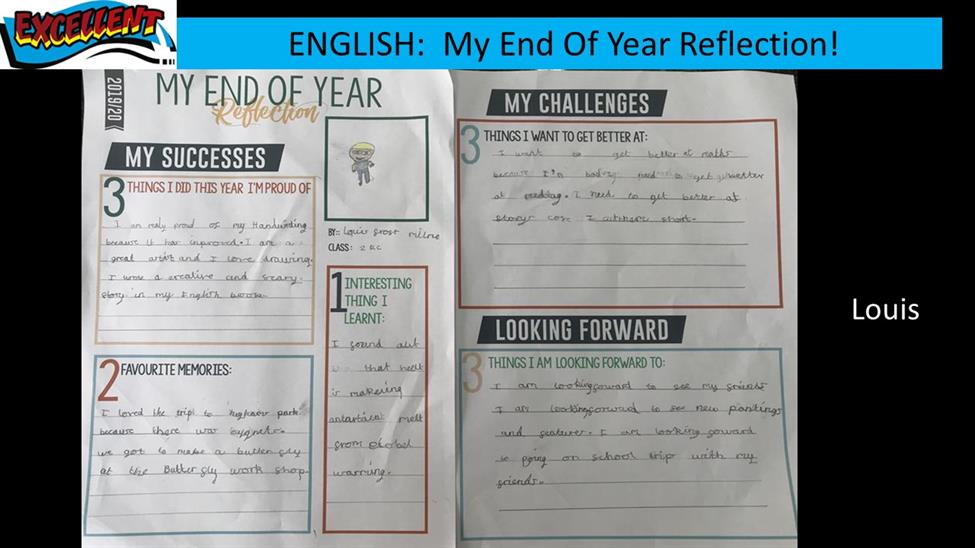 EXCELLENT
ENGLISH: My End Of Year Reflection!
2019/20
MY END OF YEAR
Reflection
MY SUCCESSES
3 THINGS I DID THIS YEAR I'M PROUD OF
I am realy proud of my Handwriting
because it has improved. I am a
great artist and I love drawing.
I wrote a creative and scary
story in my English book.
2 FAVOURITE MEMORIES:
I loved the trip to park
because there was cygnets.
we got to make a butterfly
at the Butterfly work shop.
BY: Louis
CLASS: 2
1 INTERESTING
THING I
LEARNT:
I found out
that
is makeing
melt
from
warring.
MY CHALLENGES
3 THINGS I WANT TO GET BETTER AT:
I want to get better at maths
because I'm bad need to get better
at I need to get better at
storys I short.
LOOKING FORWARD
3 THINGS I AM LOOKING FORWARD TO:
I am lookingforward to see my friends
I am lookingforward to see new
and I am looking forward
to going on school trip with my
friends.
Louis